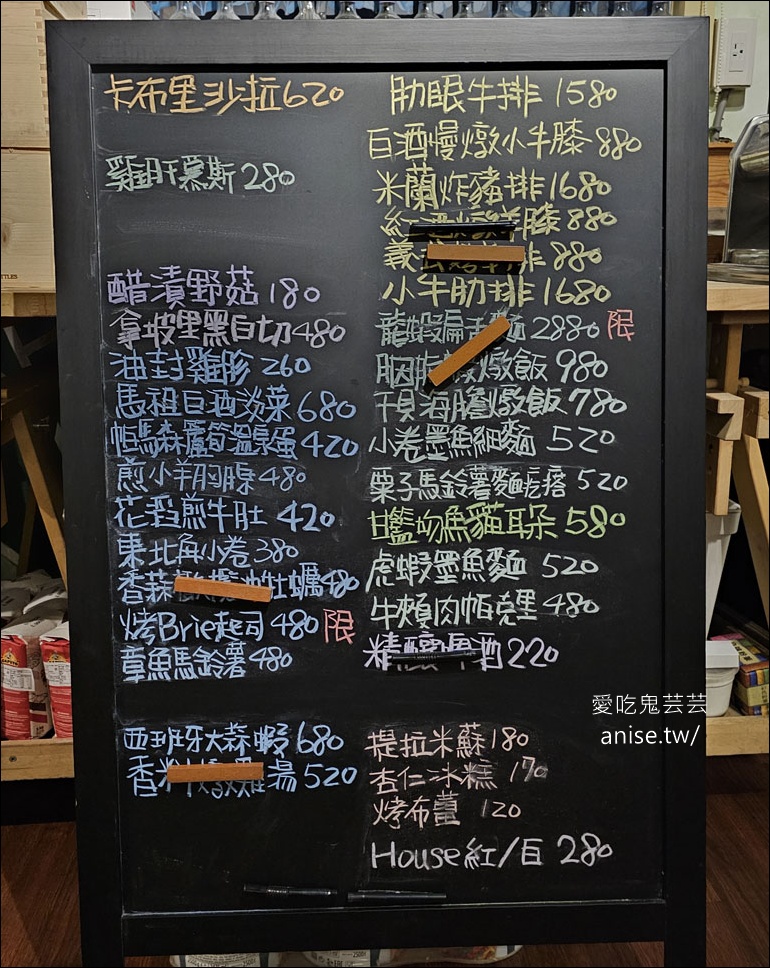 卡布里沙拉620
雞肝慕斯280
醋漬野菇180
拿坡里黑白切480
油封雞胗260
馬祖白酒淡菜680
帕馬森蘆筍溫泉蛋420
煎小羊胸腺480
花雕煎牛肚420
東北角小卷380
香蒜 牡蠣480
烤Brie起司480 限
章魚馬鈴薯480
西班牙大蒜蝦680
香 雞湯520
肋眼牛排1580
白酒慢燉小牛膝880
米蘭炸豬排1680
紅酒燉羊膝880
義 排880
小牛肋排1680
龍蝦扁舌麵2880限
胭脂 燉飯980
干貝海膽燉飯780
小卷墨魚細麵520
栗子馬鈴薯麵疙瘩520
甘藍吻魚貓耳朵580
虎蝦墨魚麵520
牛頰肉帕克里480
精釀啤酒220
提拉米蘇180
杏仁冰糕170
烤布蕾120
House紅/白280
愛吃鬼芸芸
anise.tw/